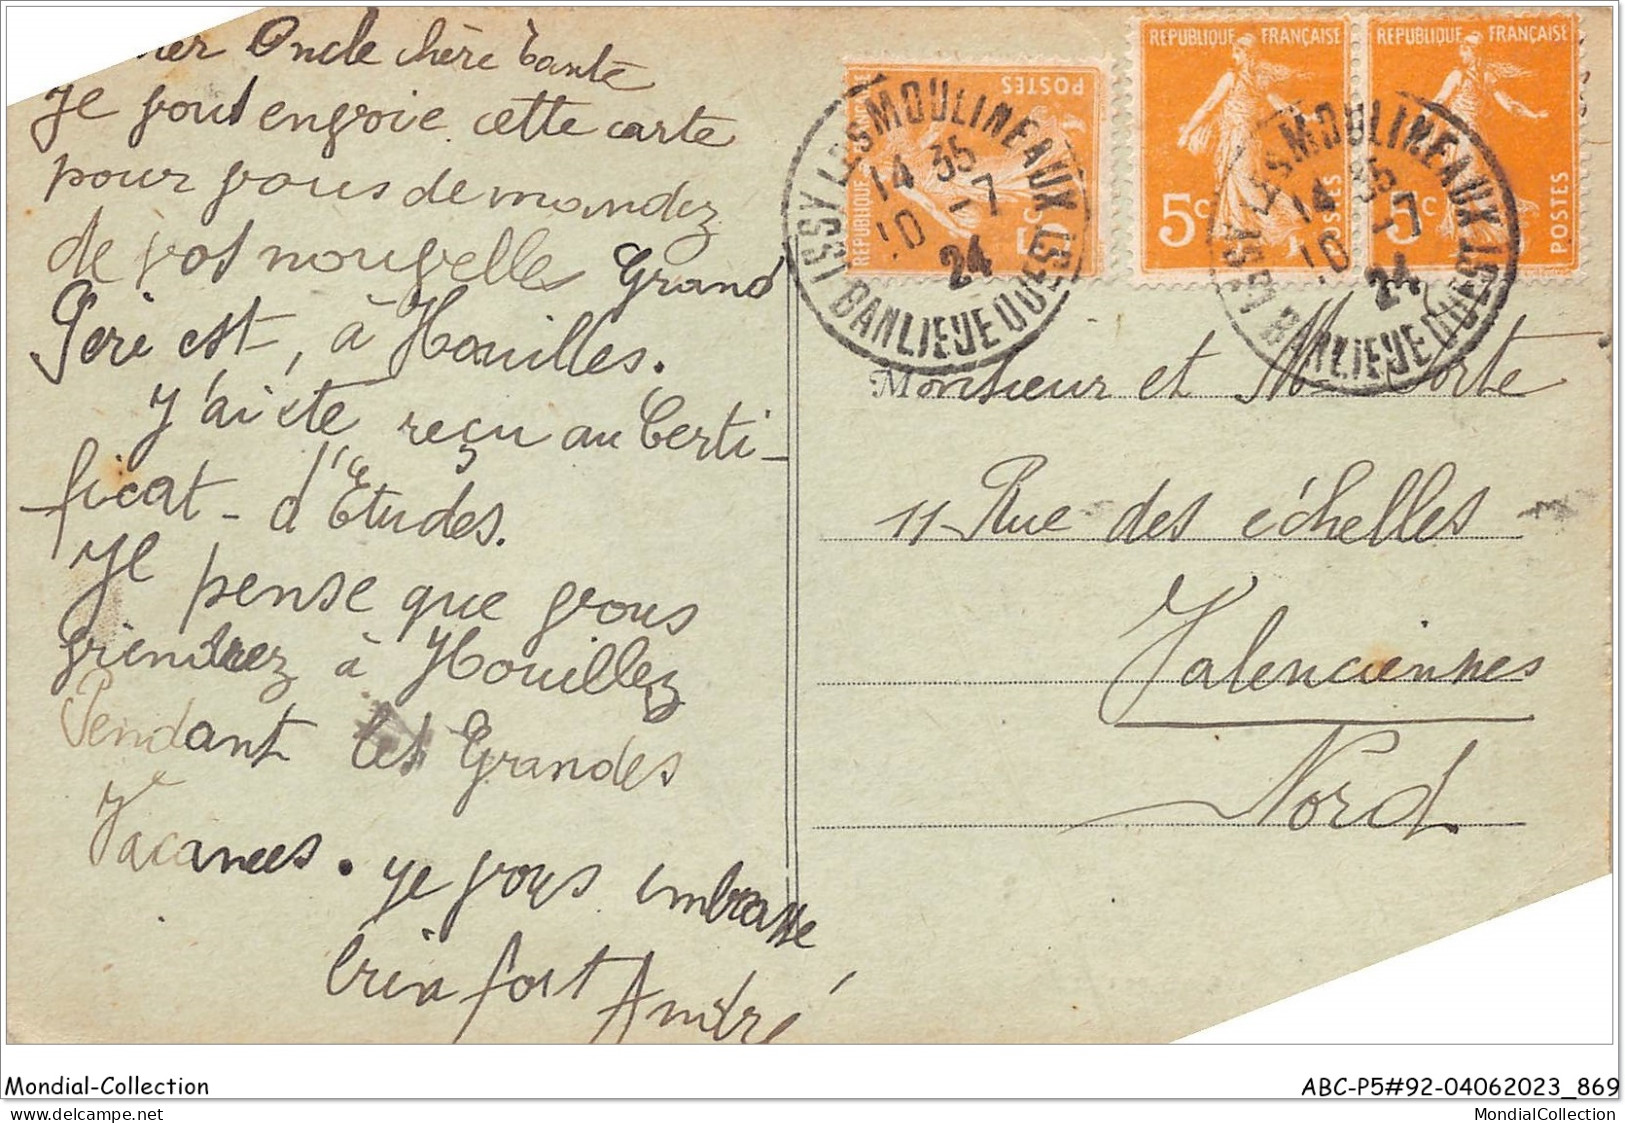 her Oncle chère tante
Je vous envoie cette carte
pour vous demandez
de vos nouvelles Grand
Père est, à Houilles.
J'ai été reçu au Certi-
ficat - d'Etudes.
Je pense que vous
viendrez à Houillez
Pendant les Grandes
Vacances. Je vous embrasse
bien fort André
REPUBLIQUE FRANÇAISE
POSTES
5c
REPUBLIQUE FRANÇAISE
5c
POSTES
REPUBLIQUE FRANÇAISE
5c
POSTES
ISSY LES MOULINEAUX
14 35
10 -7
24
BANLIEUE OUEST
ISSY LES MOULINEAUX
14 35
10 -7
24
BANLIEUE OUEST
Monsieur et M Sorte
11 Rue des échelles
Valenciennes
Nord.
Mondial-Collection
ABC-P5#92-04062023_869
MondialCollection